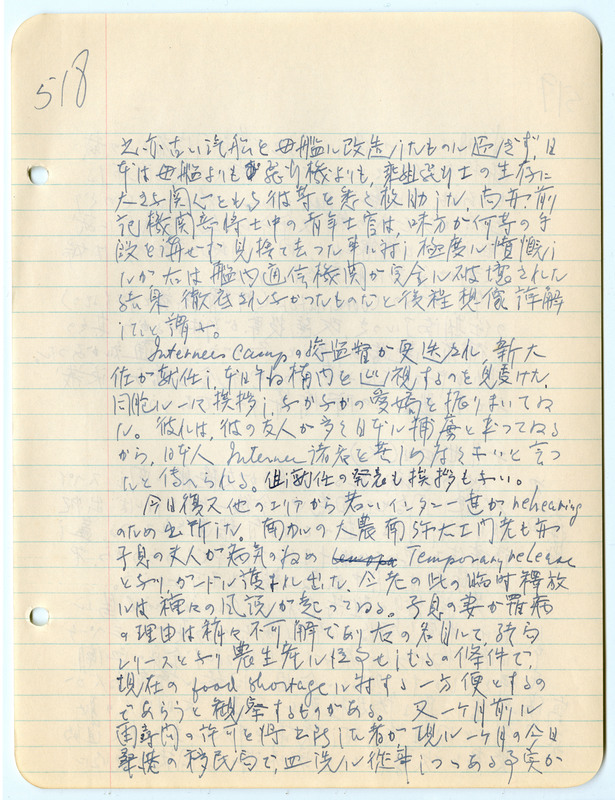 518
之亦古い汽船を母艦に改造したものに過ぎず、日
本は母艦よりも飛行機よりも、乗組飛行士の生存に
大きな関心をもち彼等を悉く救助した。尚
記機関部将士中の青年士官は、味方が何等の手
段を講ぜず見捨て去つた事に対し極度に憤慨し
たが右は艦内通信機関が完全に破壊された
結果徹底されなかつたものだと後程想像諒解
したと謂ふ。
Internees Campの総監督が更迭され、新大
佐が就任し、本日午后構内を巡視するのを見受けた。
同胞に一々挨拶し、なかなかの愛嬌を振りまいてゐ
た。彼れは、彼の友人が多く日本に捕虜となつてゐる
から、日本人Internee諸君を苦しめなくないと言つ
たと傳へられる。但し就任の発表も挨拶もない。
今日復又他のエリアから若いインターニー連がrehearing
のため出所した。南加の大農南弥右エ門老も
子息の夫人が病気のためTemporary release
となり、ガードに護まれ出た。仝老の此の臨時釋放
には種々の風説が起つてゐる。子息の妻が罹病
の理由は稍々不可解であり右の名目にて、結局
レリースとなり農生産に従事せしむるの條件で、
現在のfood shortageに対する一方便とするの
であらうと観察するものがある。又一ヶ月前に
の許可を得出所した者が現に一ヶ月の今日
桑港の移民局で、皿洗に従事しつゝある事実が